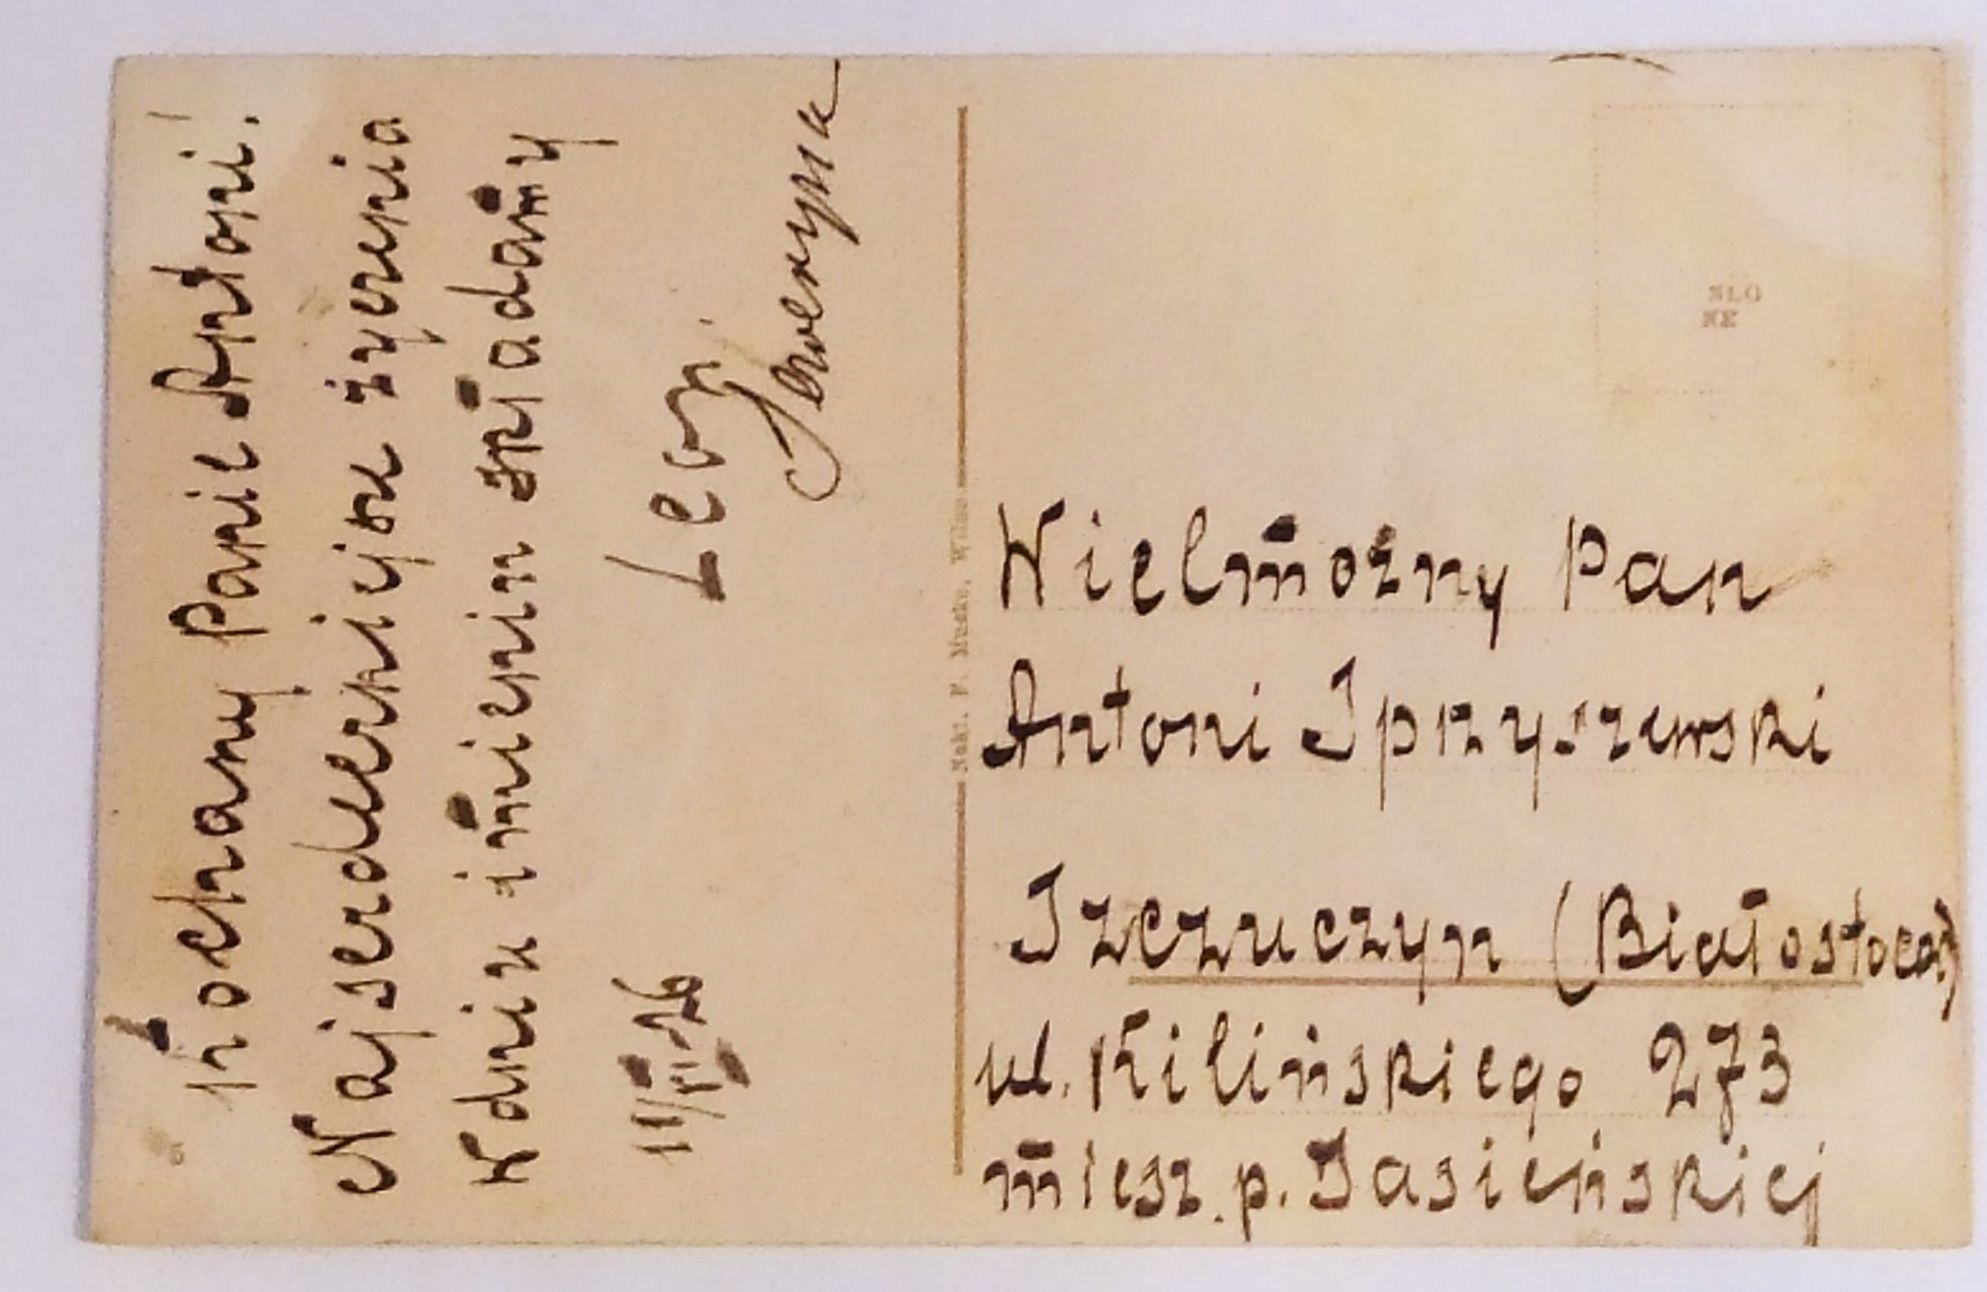 Kochany Panie Antoni!
Najserdeczniejsze życzenia
W dniu imienin składamy
Leon
Seweryna
11/VI-26
Nakł. F. Muske, Wilno
NLO
NE
Wielmożny Pan
Antoni Spryszewski
Szczuczyn (Białostocki)
ul. Kilińskiego 273
miesz. p. Jasieńskiej